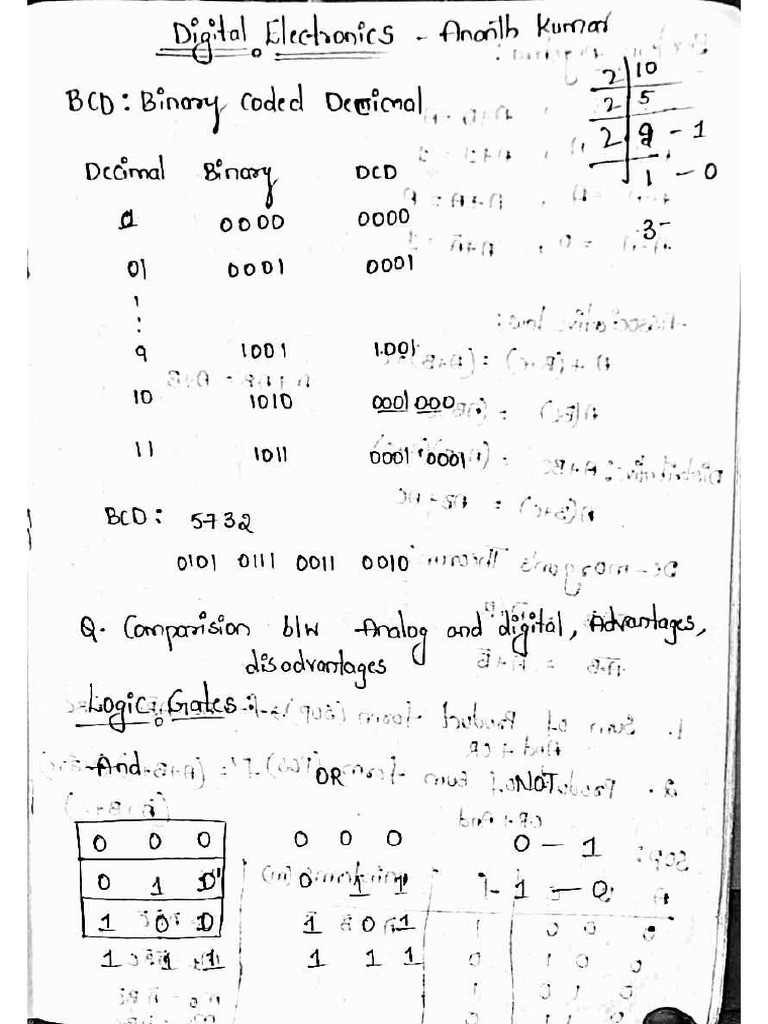 Digital Electronics - Ananth Kumar
2 | 10
2 | 5
2 | 2 - 1
1 - 0
3-
BCD: Binary Coded Decimal
Decimal Binary DCD
0 0000 0000
01 0001 0001
1
:
9 1001 1001
10 1010 0001 000
11 1011 0001 0001
BCD: 5732
0101 0111 0011 0010
Q. Comparision b/w Analog and digital, Advantages,
disadvantages
Logic Gates:
And OR NOT
0 0 0 0 0 0 0 — 1
0 1 0 0 1 1 1 — 0
1 0 0 1 0 1
1 1 1 1 1 1